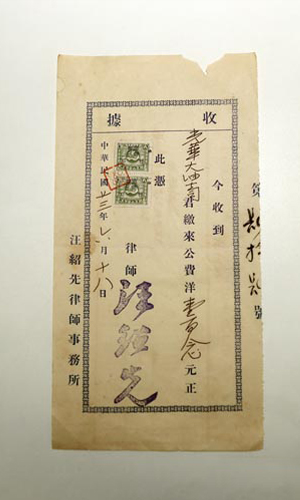 收據
今收到
光華大油南君繳來公費洋壹百念元正
此憑
律師汪紹先
中華民國廿三年 月十八日
汪紹先律師事務所
第 拾 號